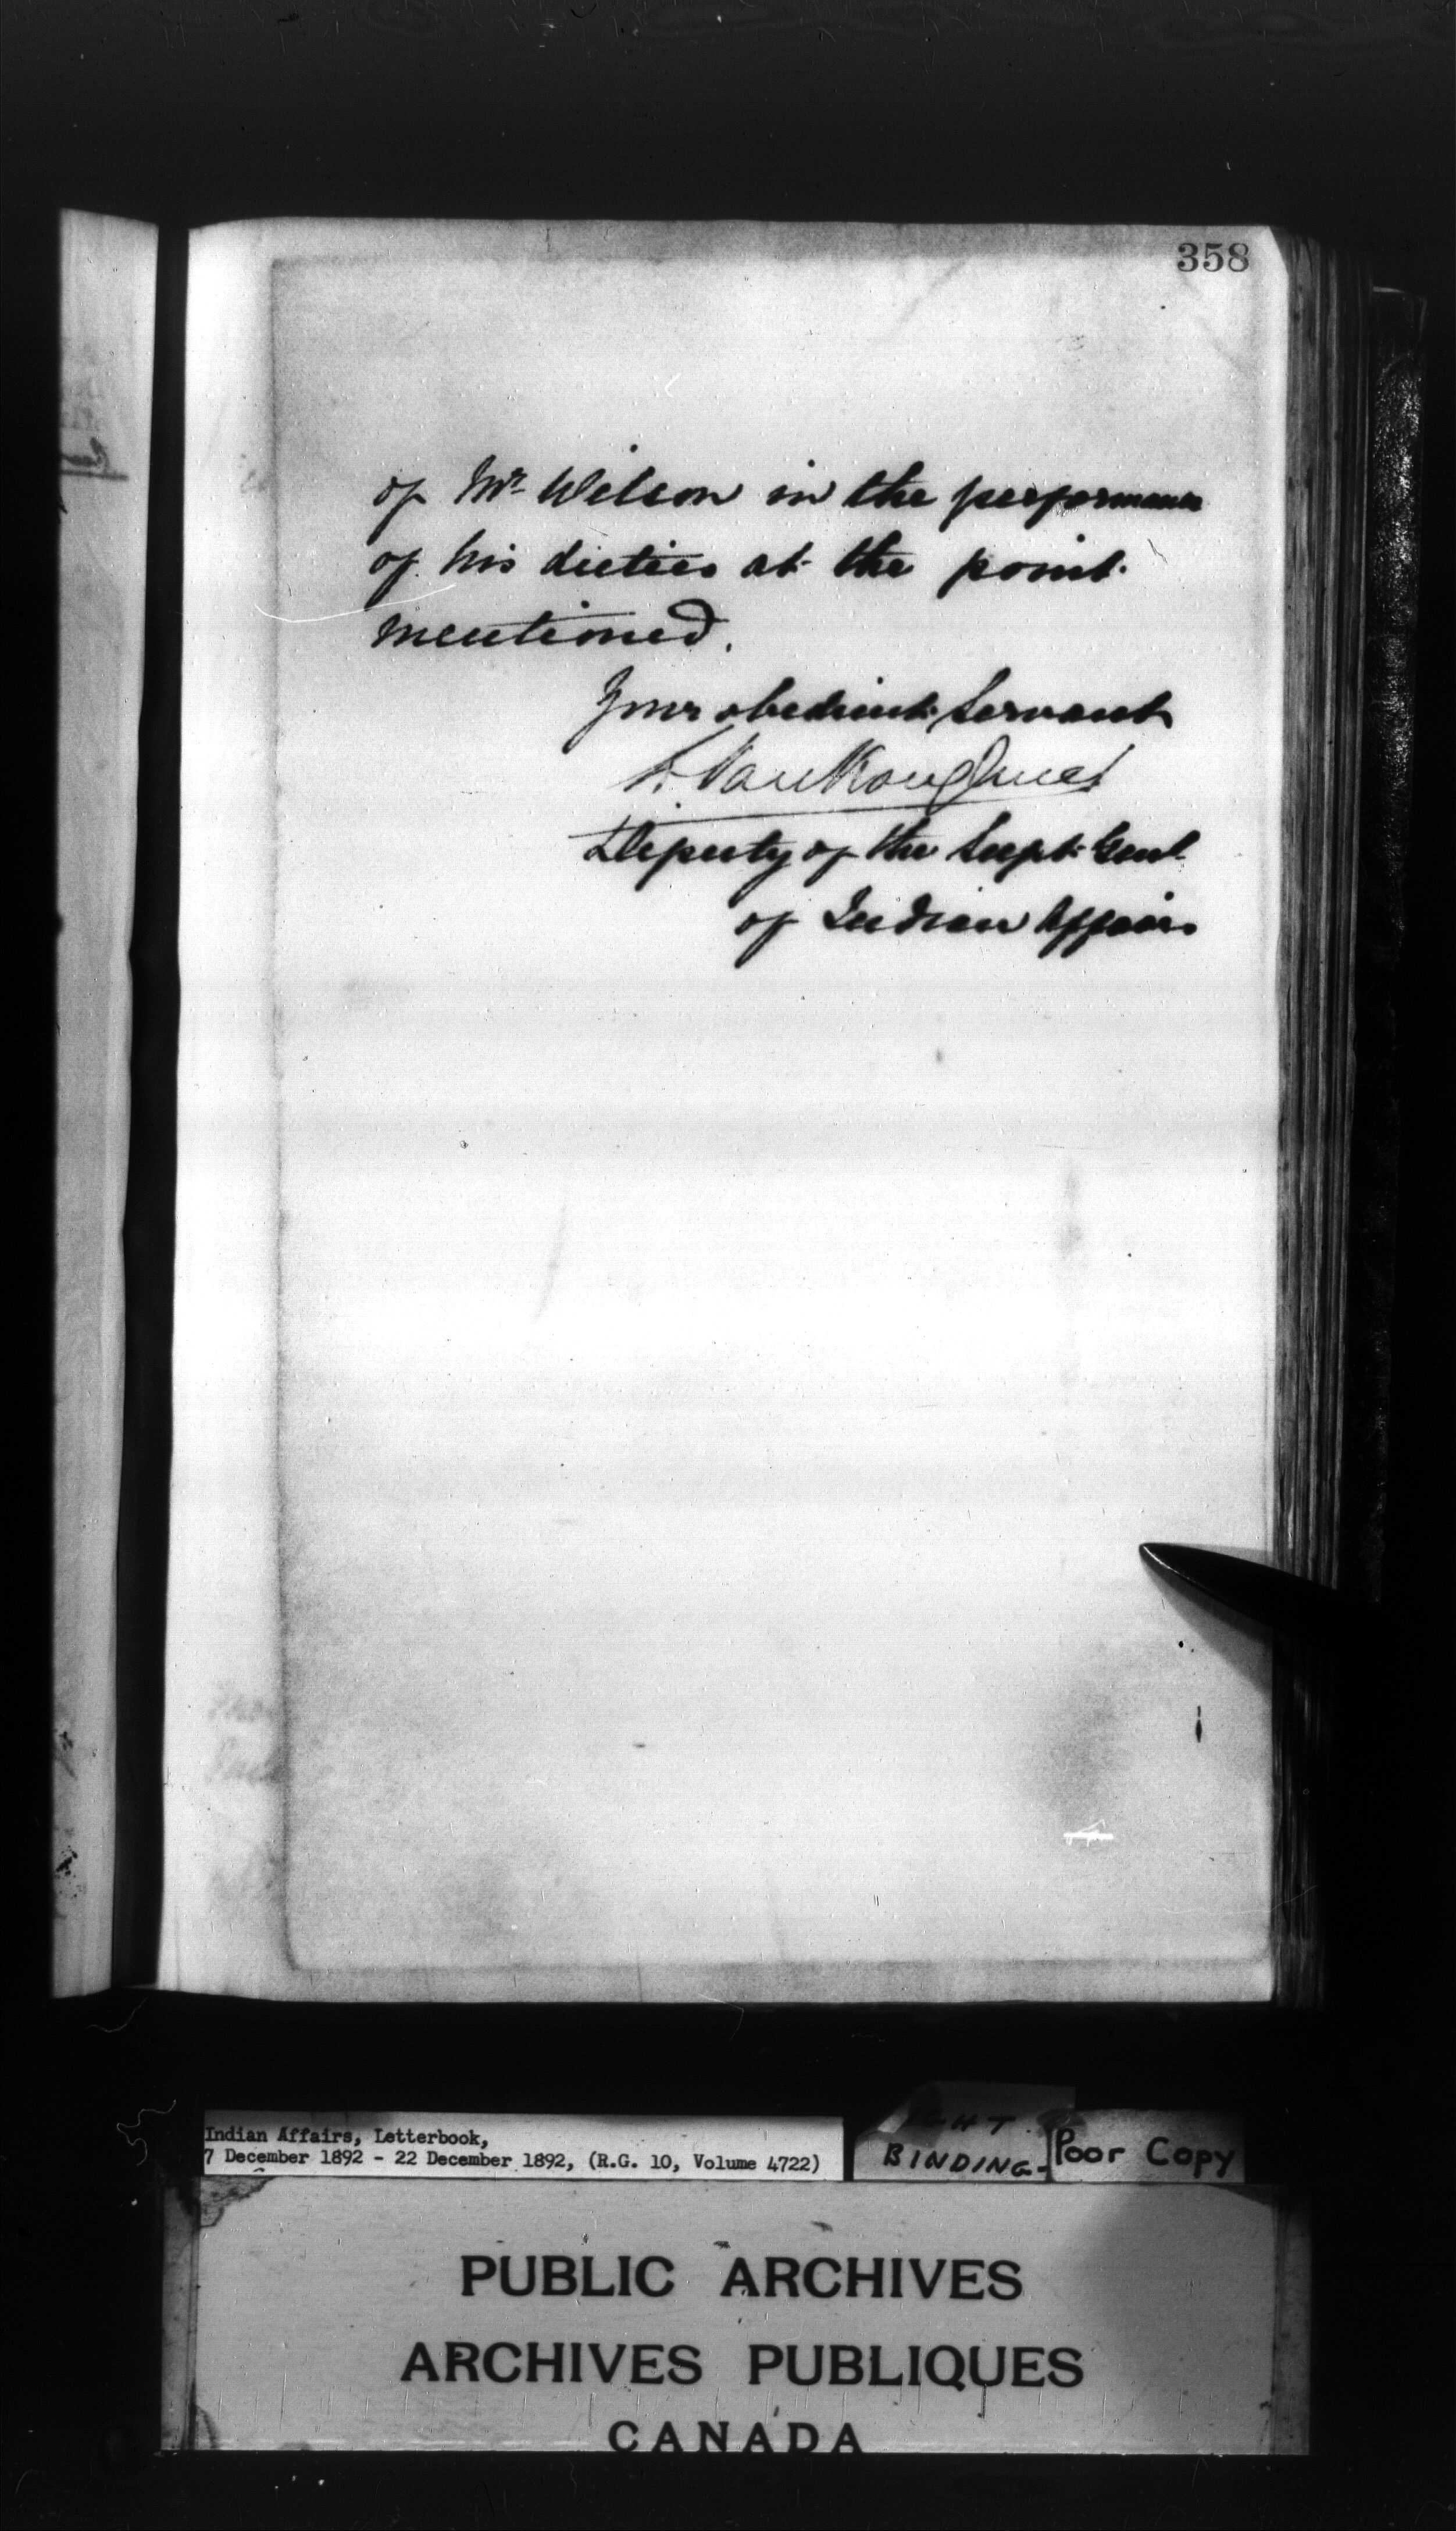 358
of Mr Wilson in the performance
of his duties at the point
mentioned.
Your obedient Servant
L. VanKoughnet
Deputy of the Supt. Genl
of Indian Affairs
Indian Affairs, Letterbook,
7 December 1892 - 22 December 1892, (R.G. 10, Volume 4722)
BINDING-
Poor Copy
PUBLIC ARCHIVES
ARCHIVES PUBLIQUES
CANADA